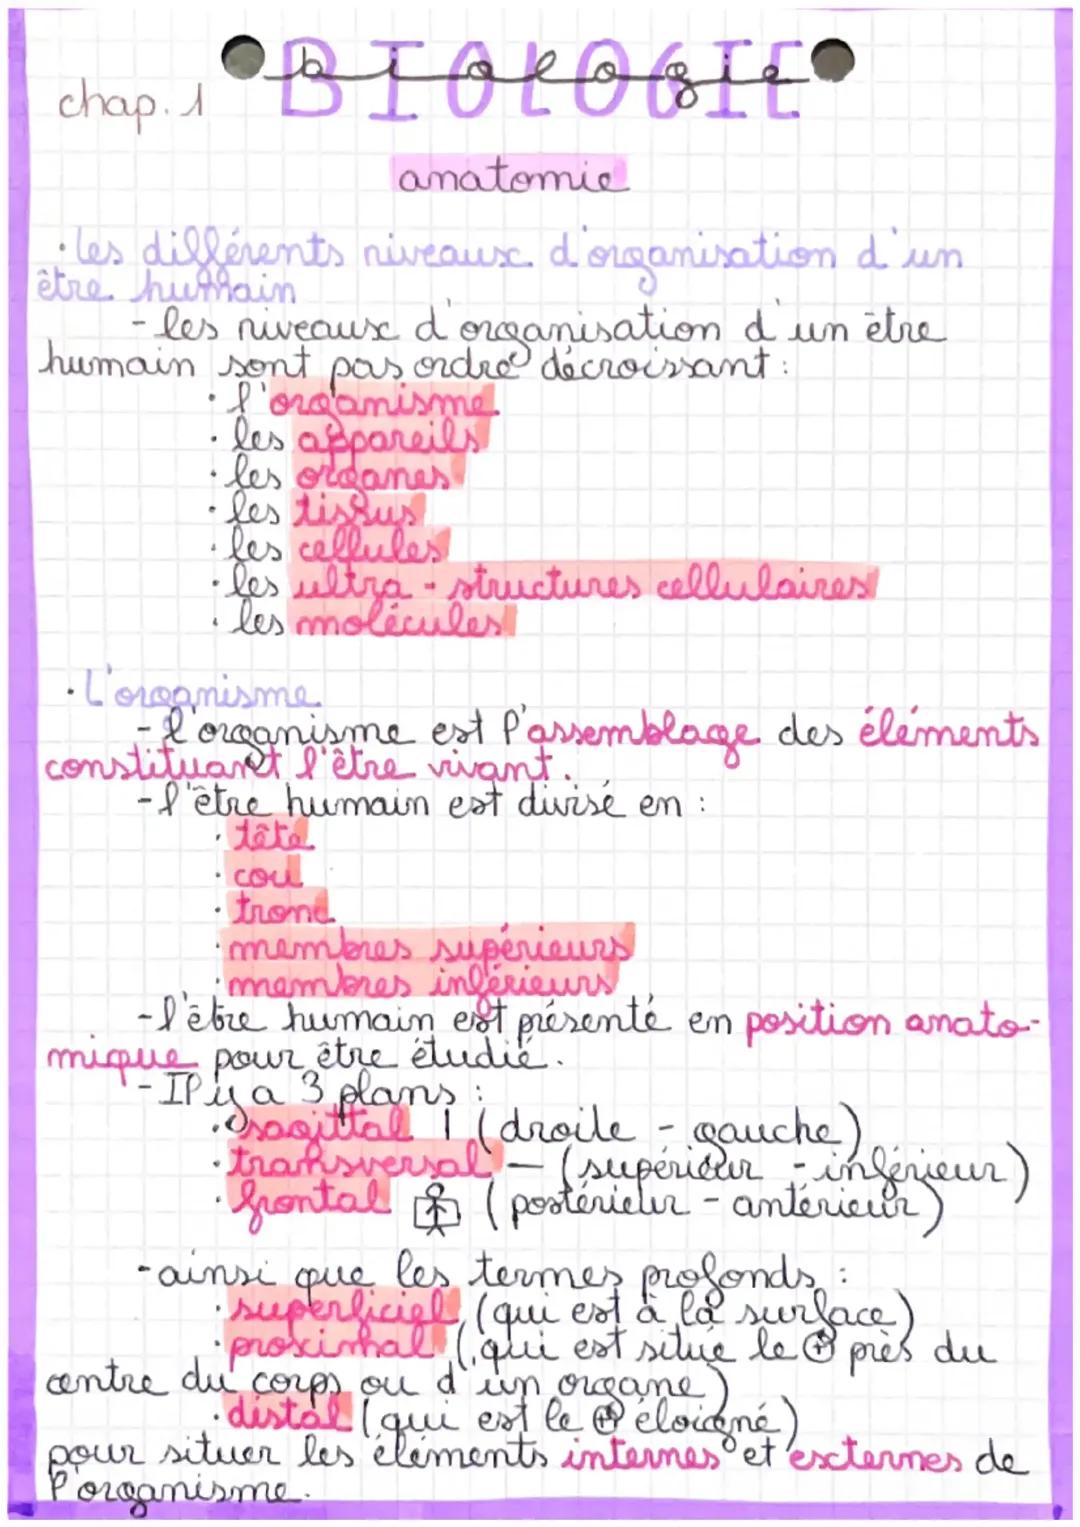 BIOLOGIE
biologie
chap. 1
anatomie
· les différents niveaux d'organisation d'un
être humain
- les niveaux d'organisation d'un être
humain sont pas ordre décroissant :
· l'organisme
· les appareils
· les organes
· les tissus
· les cellules
· les ultra - structures cellulaires
· les molécules
· L'organisme
- l'organisme est l'assemblage des éléments
constituant l'être vivant.
- l'être humain est divisé en :
· tête
· cou
· tronc
· membres supérieurs
· membres inférieurs
- l'être humain est présenté en position anato-
mique pour être étudié.
- Il y a 3 plans :
· sagittal | (droite - gauche)
· transversal — (supérieur - inférieur)
· frontal (postérieur - antérieur)
- ainsi que les termes profonds :
· superficiel (qui est à la surface)
· proximal (qui est situé le ⊕ près du
centre du corps ou d'un organe)
· distal (qui est le ⊕ éloigné)
pour situer les éléments internes et externes de
l'organisme.